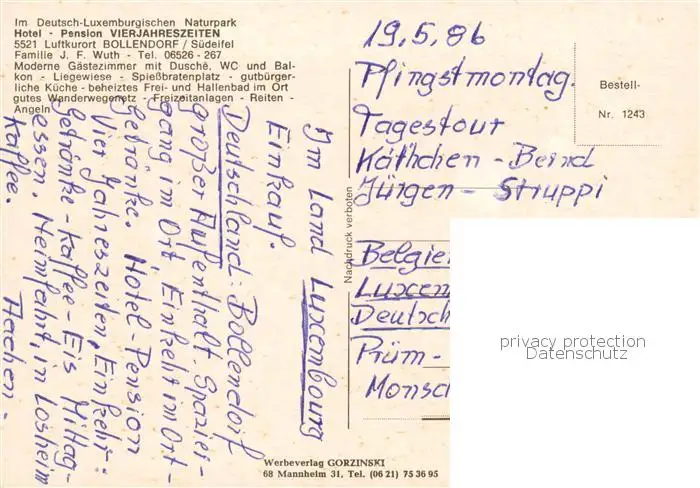 Im Deutsch-Luxemburgischen Naturpark
Hotel - Pension VIERJAHRESZEITEN
5521 Luftkurort BOLLENDORF / Südeifel
Familie J. F. Wuth - Tel. 06526 - 267
Moderne Gästezimmer mit Dusche, WC und Bal-
kon - Liegewiese - Spießbratenplatz - gutbürger-
liche Küche - beheiztes Frei- und Hallenbad im Ort
gutes Wanderwegenetz - Freizeitanlagen - Reiten -
Angeln
Im Land Luxembourg
Einkauf.
Deutschland: Bollendorf
großer Aufenthalt. Spazier-
gang im Ort, Einkehr im Ort-
Getränke. Hotel-Pension
Vier Jahreszeiten, Einkehr:
Getränke-Kaffee-Eis Mittag-
essen. Heimfahrt, in Losheim
Kaffee. Aachen.
Nachdruck verboten
19.5.86
Pfingstmontag.
Tagestour
Käthchen - Bernd
Jürgen - Struppi
Belgie
Luxem
Deutsch
Prüm-
Monsc
Bestell-
Nr. 1243
privacy protection
Datenschutz
Werbeverlag GORZINSKI
68 Mannheim 31, Tel. (06 21) 75 36 95